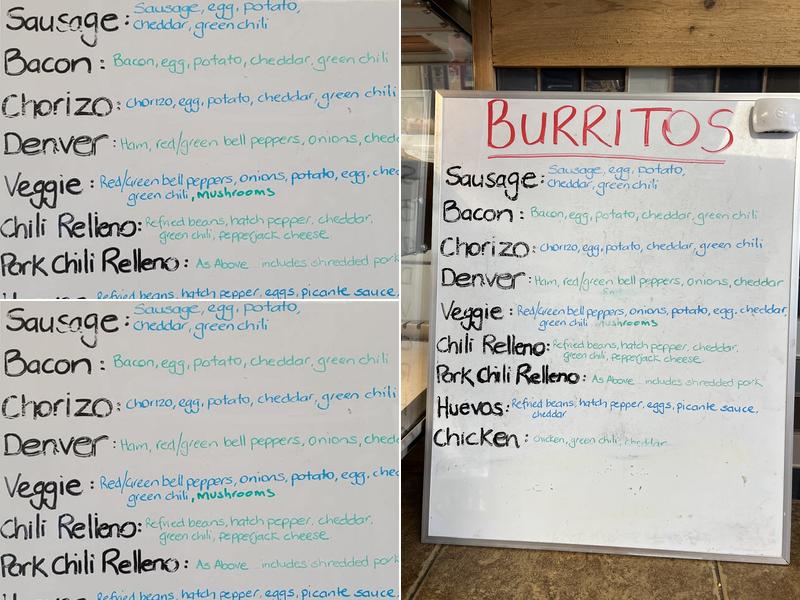 Sausage: Sausage, egg, potato,
cheddar, green chili
Bacon: Bacon, egg, potato, cheddar, green chili
Chorizo: Chorizo, egg, potato, cheddar, green chili
Denver: Ham, red/green bell peppers, onions, ched
Veggie: Red/Green bell peppers, onions, potato, egg, che
green chili, Mushrooms
Chili Relleno: Refried beans, hatch pepper, cheddar,
green chili, pepperjack cheese
Pork Chili Relleno: As Above... includes shredded pork
Refried beans, hatch pepper, eggs, picante sauce,
Sausage: Sausage, egg, potato,
cheddar, green chili
Bacon: Bacon, egg, potato, cheddar, green chili
Chorizo: Chorizo, egg, potato, cheddar, green chili
Denver: Ham, red/green bell peppers, onions, ched
Veggie: Red/Green bell peppers, onions, potato, egg, che
green chili, Mushrooms
Chili Relleno: Refried beans, hatch pepper, cheddar,
green chili, pepperjack cheese
Pork Chili Relleno: As Above... includes shredded pork
Refried beans, hatch pepper, eggs, picante sauce,
BURRITOS
Sausage: Sausage, egg, potato,
cheddar, green chili
Bacon: Bacon, egg, potato, cheddar, green chili
Chorizo: Chorizo, egg, potato, cheddar, green chili
Denver: Ham, red/green bell peppers, onions, cheddar
Veggie: Red/Green bell peppers, onions, potato, egg, cheddar,
green chili Mushrooms
Chili Relleno: Refried beans, hatch pepper, cheddar,
green chili, pepperjack cheese
Pork Chili Relleno: As Above... includes shredded pork
Huevos: Refried beans, hatch pepper, eggs, picante sauce,
cheddar
Chicken: chicken, green chili, cheddar